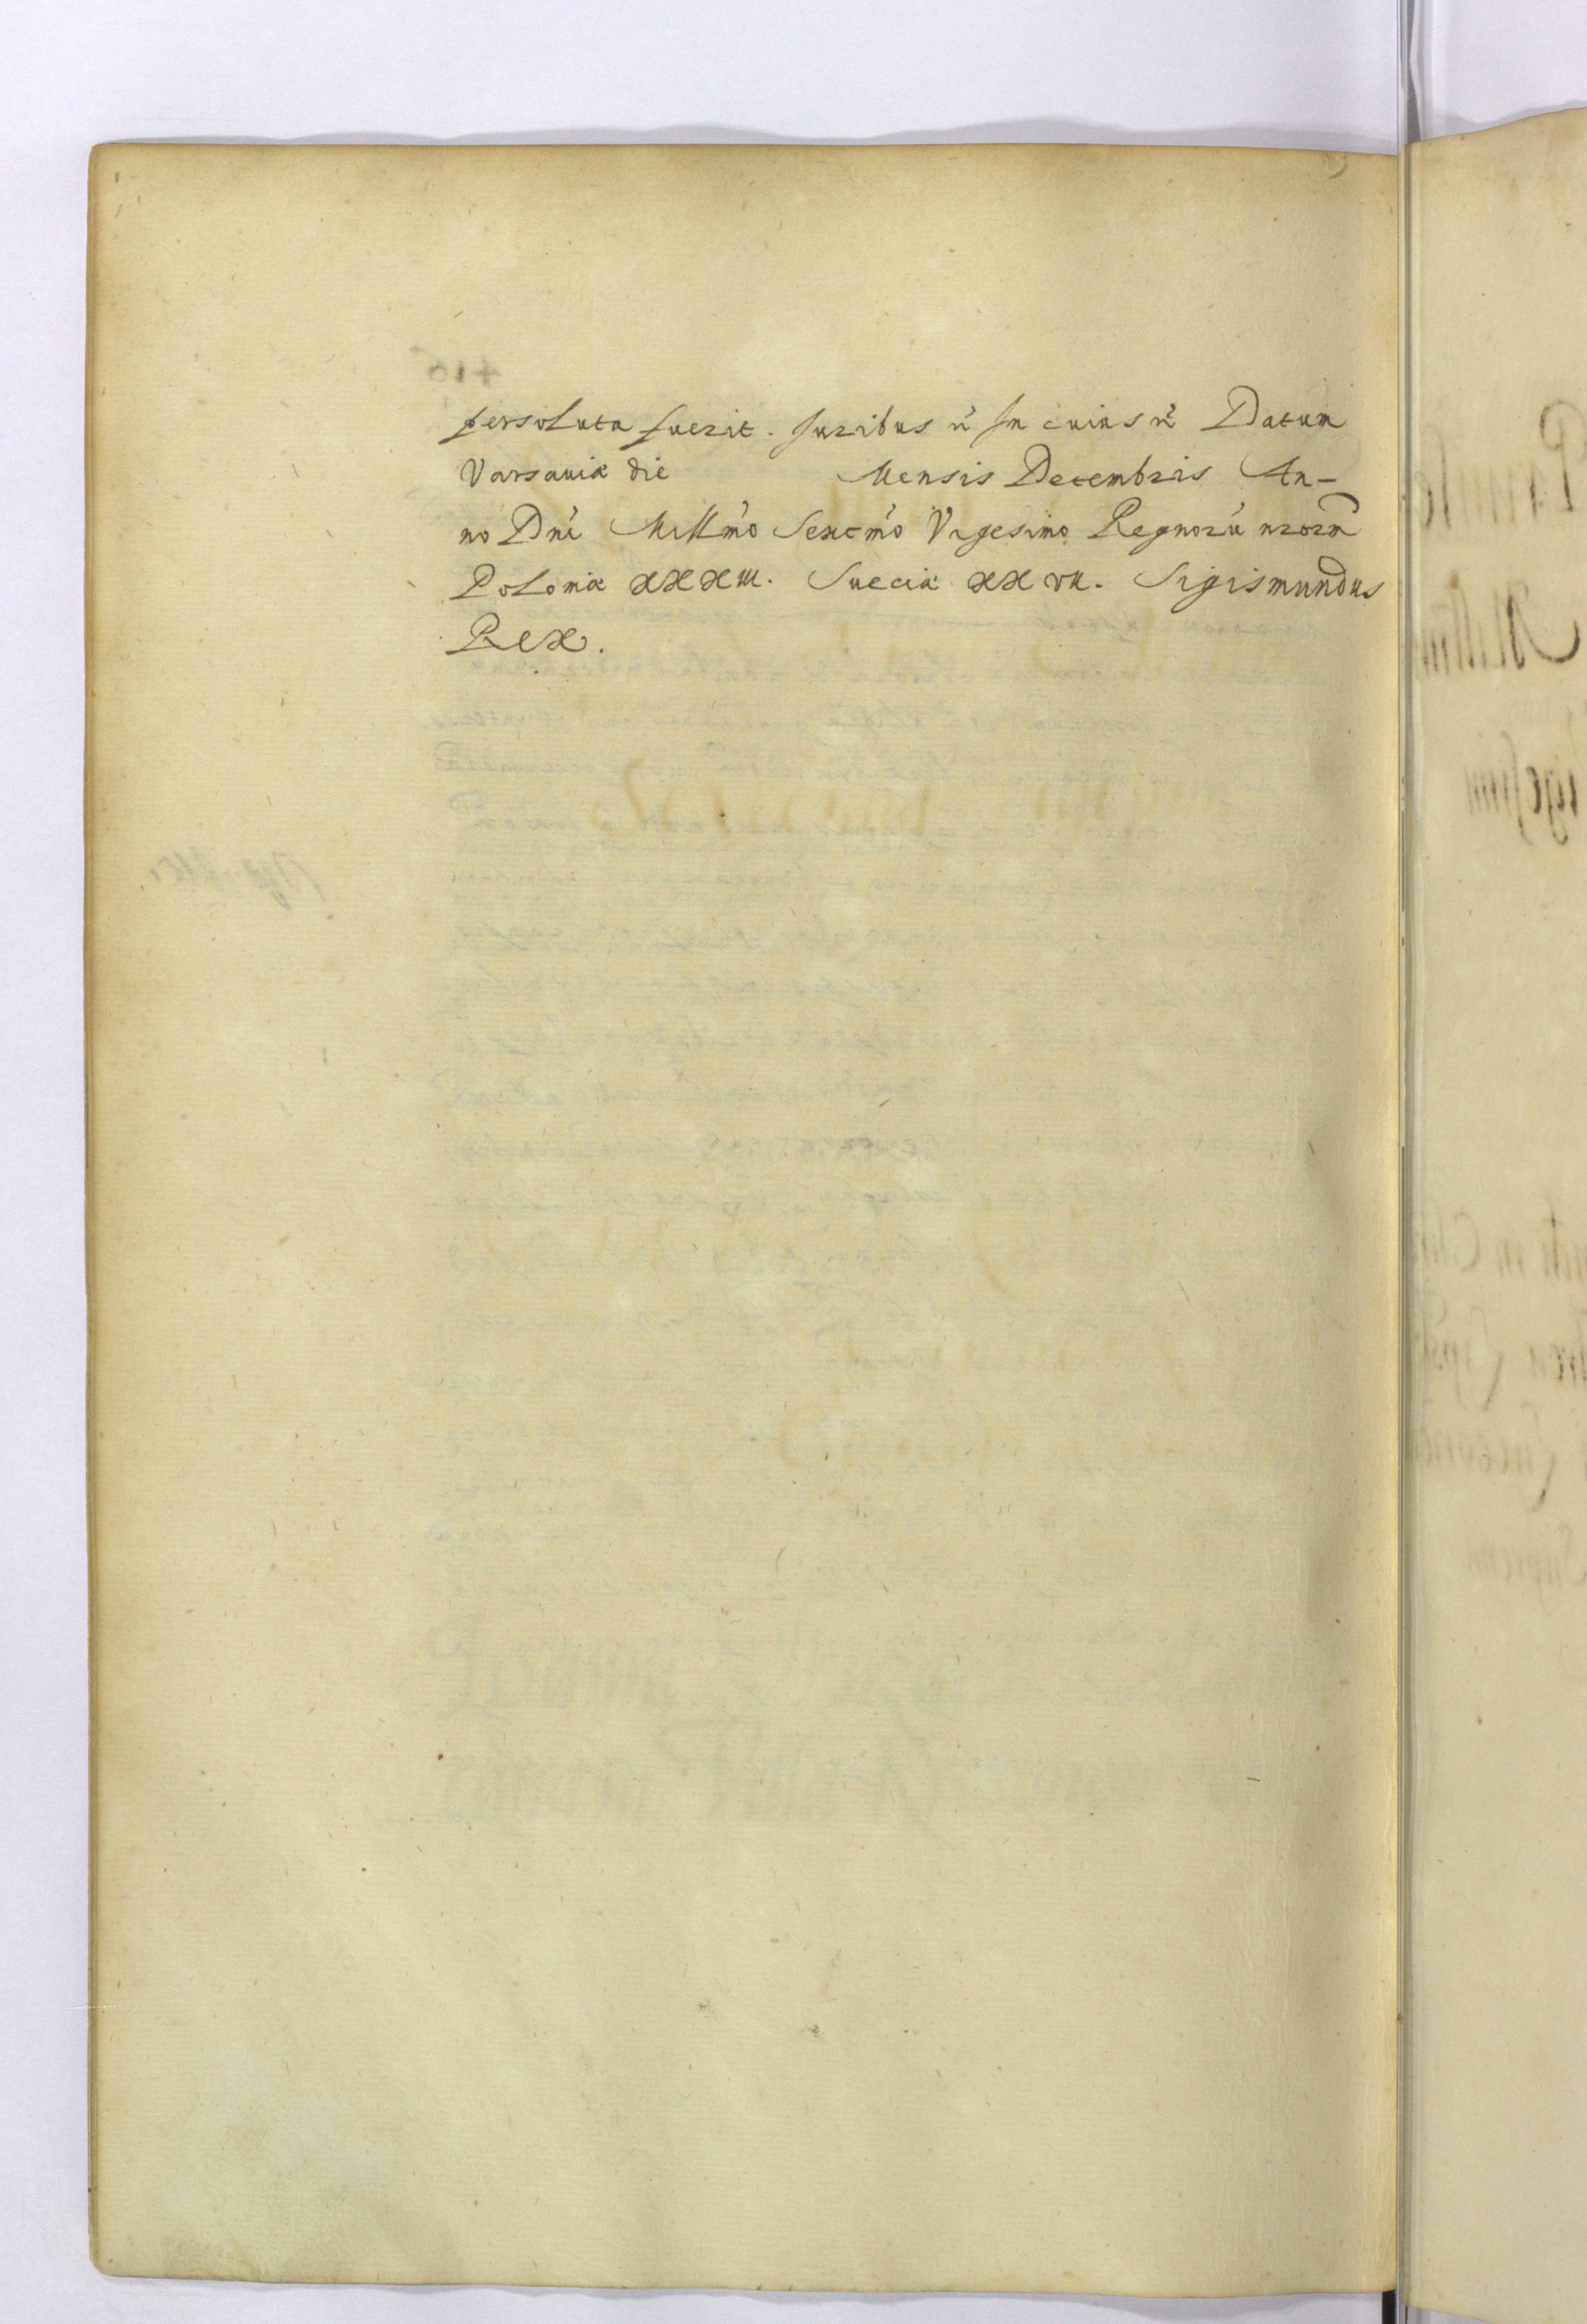 persoluta fuerit. Juribus ẽ In cuius ẽ Datum
Varsauiæ die Mensis Decembris An-
no Dni Millmo Sexctmo Vigesimo Regnorũ nrorũ
Poloniæ XXXIII. Sueciæ XXVII. Sigismundus
Rex.